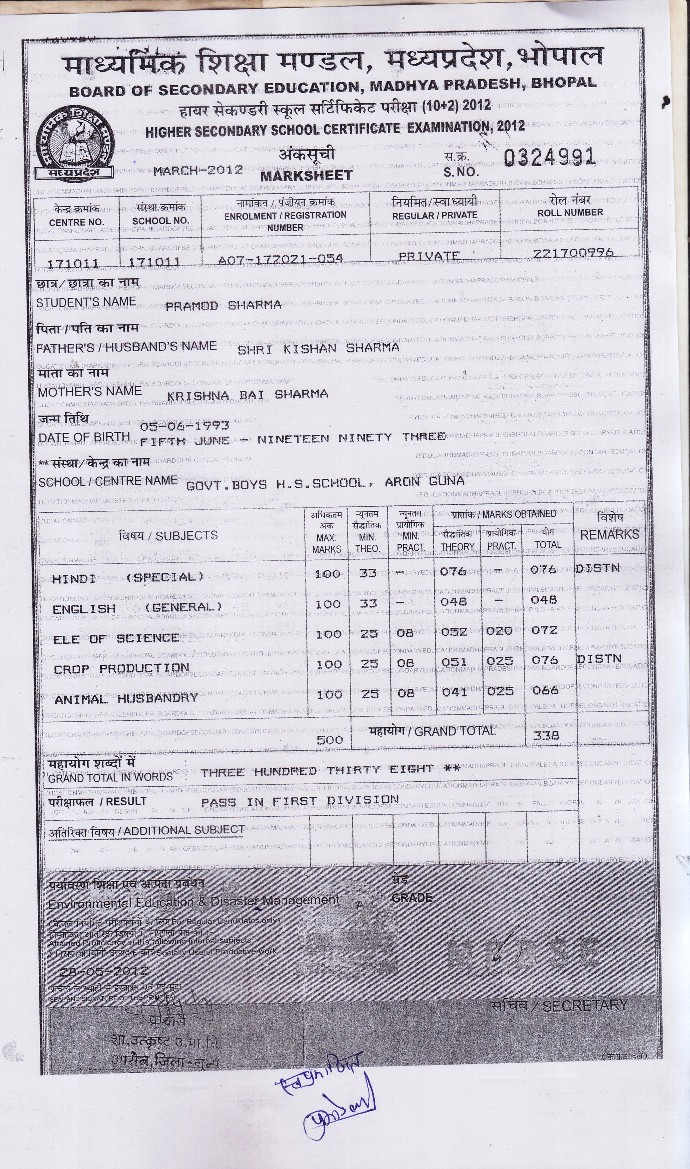 माध्यमिक शिक्षा मण्डल, मध्यप्रदेश, भोपाल
BOARD OF SECONDARY EDUCATION, MADHYA PRADESH, BHOPAL
हायर सेकण्डरी स्कूल सर्टिफिकेट परीक्षा (10+2) 2012
HIGHER SECONDARY SCHOOL CERTIFICATE EXAMINATION, 2012
मध्यप्रदेश
MARCH-2012
अंकसूची
MARKSHEET
स.क्र.
S.NO. 0324991
केन्द्र क्रमांक संस्था क्रमांक नामांकन / पंजीयन क्रमांक नियमित/स्वाध्यायी रोल नंबर
CENTRE NO. SCHOOL NO. ENROLMENT / REGISTRATION NUMBER REGULAR / PRIVATE ROLL NUMBER
171011 171011 A07-172021-054 PRIVATE 221700996
छात्र/छात्रा का नाम
STUDENT'S NAME PRAMOD SHARMA
पिता / पति का नाम
FATHER'S / HUSBAND'S NAME SHRI KISHAN SHARMA
माता का नाम
MOTHER'S NAME KRISHNA BAI SHARMA
जन्म तिथि 05-06-1993
DATE OF BIRTH FIFTH JUNE - NINETEEN NINETY THREE
** संस्था/केन्द्र का नाम
SCHOOL / CENTRE NAME GOVT.BOYS H.S.SCHOOL, ARON GUNA
विषय / SUBJECTS
अधिकतम अंक MAX. MARKS
न्यूनतम सैद्धांतिक MIN. THEO.
न्यूनतम प्रायोगिक MIN. PRACT.
प्राप्तांक / MARKS OBTAINED
सैद्धांतिक THEORY
प्रायोगिक PRACT.
योग TOTAL
विशेष REMARKS
HINDI (SPECIAL) 100 33 - 076 - 076 DISTN
ENGLISH (GENERAL) 100 33 - 048 - 048
ELE OF SCIENCE 100 25 08 052 020 072
CROP PRODUCTION 100 25 08 051 025 076 DISTN
ANIMAL HUSBANDRY 100 25 08 041 025 066
500 महायोग / GRAND TOTAL 338
महायोग शब्दों में
GRAND TOTAL IN WORDS THREE HUNDRED THIRTY EIGHT **
परीक्षाफल / RESULT PASS IN FIRST DIVISION
अतिरिक्त विषय / ADDITIONAL SUBJECT
पर्यावरण शिक्षा एवं आपदा प्रबंधन
Environmental Education & Disaster Management
ग्रेड
GRADE
28-05-2012
सचिव / SECRETARY
प्राचार्य
शा.उत्कृष्ट उ.मा.वि.
स्वप्रमाणित